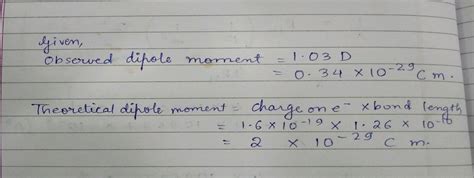 Given,
Observed dipole moment = 1.03 D
= 0.34 × 10⁻²⁹ C m.
Theoretical dipole moment = charge on e⁻ × bond length
= 1.6 × 10⁻¹⁹ × 1.26 × 10⁻¹⁰
= 2 × 10⁻²⁹ C m.